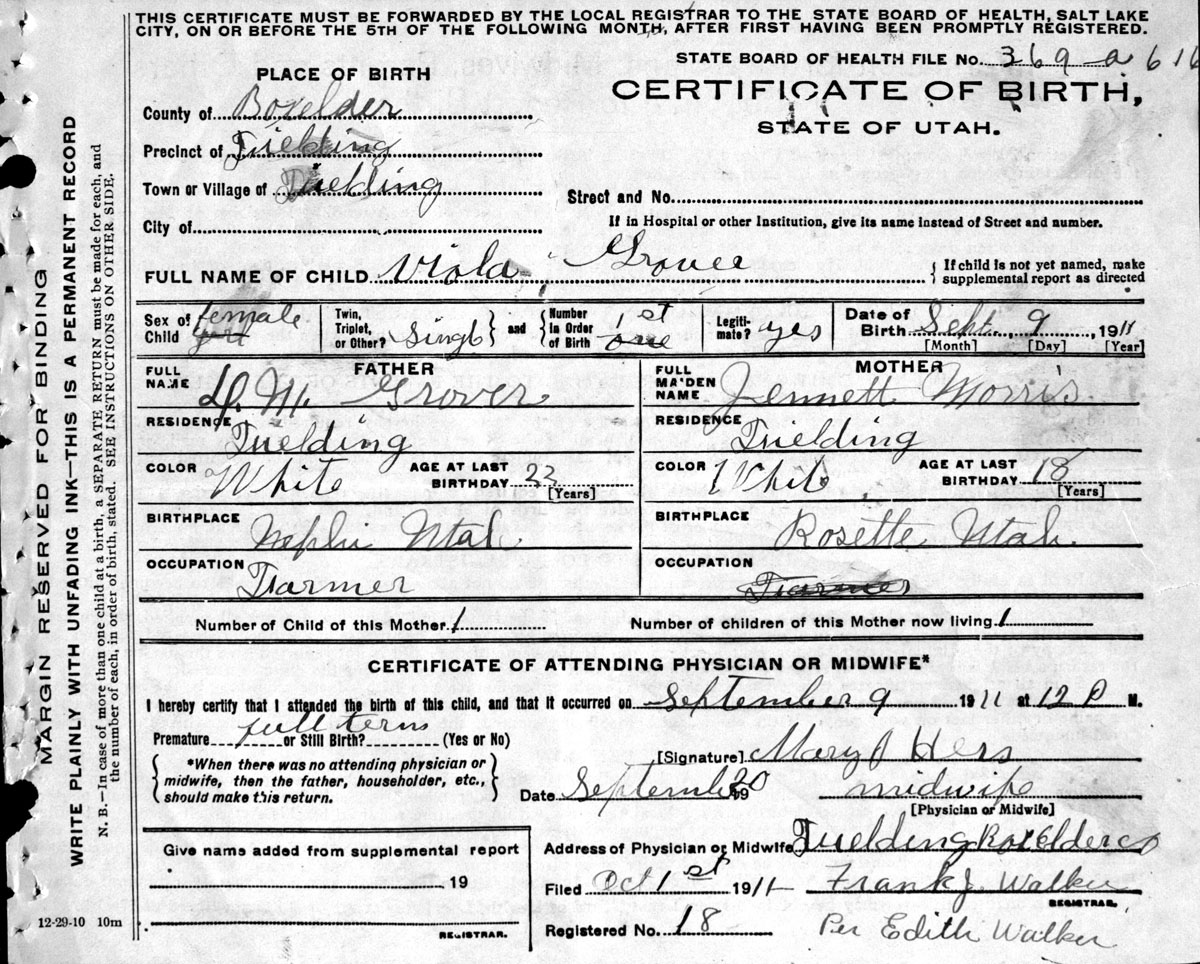 THIS CERTIFICATE MUST BE FORWARDED BY THE LOCAL REGISTRAR TO THE STATE BOARD OF HEALTH, SALT LAKE
CITY, ON OR BEFORE THE 5TH OF THE FOLLOWING MONTH, AFTER FIRST HAVING BEEN PROMPTLY REGISTERED.
STATE BOARD OF HEALTH FILE No. 369-a 616
CERTIFICATE OF BIRTH,
STATE OF UTAH.
PLACE OF BIRTH
County of Boxelder
Precinct of Fielding
Town or Village of Fielding
Street and No.
City of
If in Hospital or other Institution, give its name instead of Street and number.
FULL NAME OF CHILD Viola Grover
{ If child is not yet named, make
supplemental report as directed
Sex of Child female girl
Twin, Triplet, or Other? Singl
and
Number in Order of Birth 1st one
Legiti-mate? yes
Date of Birth Sept. 9 1911
[Month] [Day] [Year]
FATHER
FULL NAME D. M. Grover
RESIDENCE Fielding
COLOR White AGE AT LAST BIRTHDAY 22 [Years]
BIRTHPLACE Nephi Utah
OCCUPATION Farmer
MOTHER
FULL MAIDEN NAME Jennett Morris
RESIDENCE Fielding
COLOR White AGE AT LAST BIRTHDAY 18 [Years]
BIRTHPLACE Rosette Utah.
OCCUPATION Farmer
Number of Child of this Mother 1
Number of children of this Mother now living 1
CERTIFICATE OF ATTENDING PHYSICIAN OR MIDWIFE*
I hereby certify that I attended the birth of this child, and that it occurred on September 9 1911 at 12 P M.
full term
Premature or Still Birth? (Yes or No)
*When there was no attending physician or
midwife, then the father, householder, etc.,
should make this return.
[Signature] Mary J Hess
Date September 20 19
midwife
[Physician or Midwife]
Give name added from supplemental report
19
REGISTRAR.
Address of Physician or Midwife Fielding Boxelder co
Filed Oct 1st 1911 Frank J. Walker
REGISTRAR.
Registered No. 18 Per Edith Walker
12-29-10 10m
MARGIN RESERVED FOR BINDING
WRITE PLAINLY WITH UNFADING INK—THIS IS A PERMANENT RECORD
N. B.—In case of more than one child at a birth, a SEPARATE RETURN must be made for each, and
the number of each, in order of birth, stated. SEE INSTRUCTIONS ON OTHER SIDE.